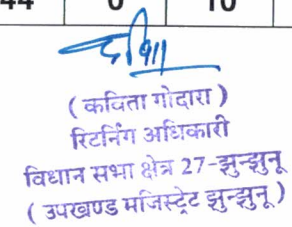 44 0 10
( कविता गोदारा )
रिटर्निंग अधिकारी
विधान सभा क्षेत्र 27-झुन्झुनू
( उपखण्ड मजिस्ट्रेट झुन्झुनू )